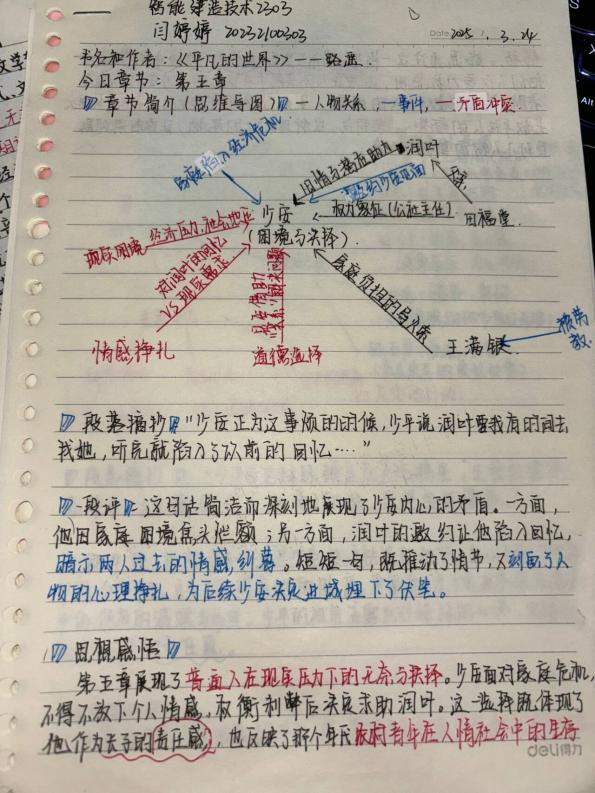 智能建造技术2303
闫婷婷 20232100303
Date 2025.3.24
书名和作者：《平凡的世界》——路遥
今日章节：第五章
章节简介（思维导图）—人物关系 —事件，—矛盾冲突
家庭陷入经济危机
旧情与潜在助力
润叶
邀约少安见面
父亲
少安
(困境与决择)
权力象征(公社主任)
田福堂
现实困境
经济压力、社会地位
对润叶的回忆
VS现实需求
情感挣扎
道德选择
家庭负担的导火索
王满银
被劳教
段落摘抄 “少安正为这事烦的时候，少平说润叶要我有的时间去
找她，听完就陷入了以前的回忆…”
段评 这句话简洁而深刻地展现了少安内心的矛盾。一方面，
他因家庭困境焦头烂额；另一方面，润叶的邀约让他陷入回忆，
暗示两人过去的情感纠葛。短短一句，既推动了情节，又刻画了人
物的心理挣扎，为后续少安决定进城埋下了伏笔。
思想感悟
第五章展现了普通人在现实压力下的无奈与抉择。少安面对家庭危机，
不得不放下个人情感，权衡利弊后决定求助润叶。这一选择既体现了
他作为长子的责任感，也反映了那个年代农村青年在人情社会中的生存
deli得力
Alt